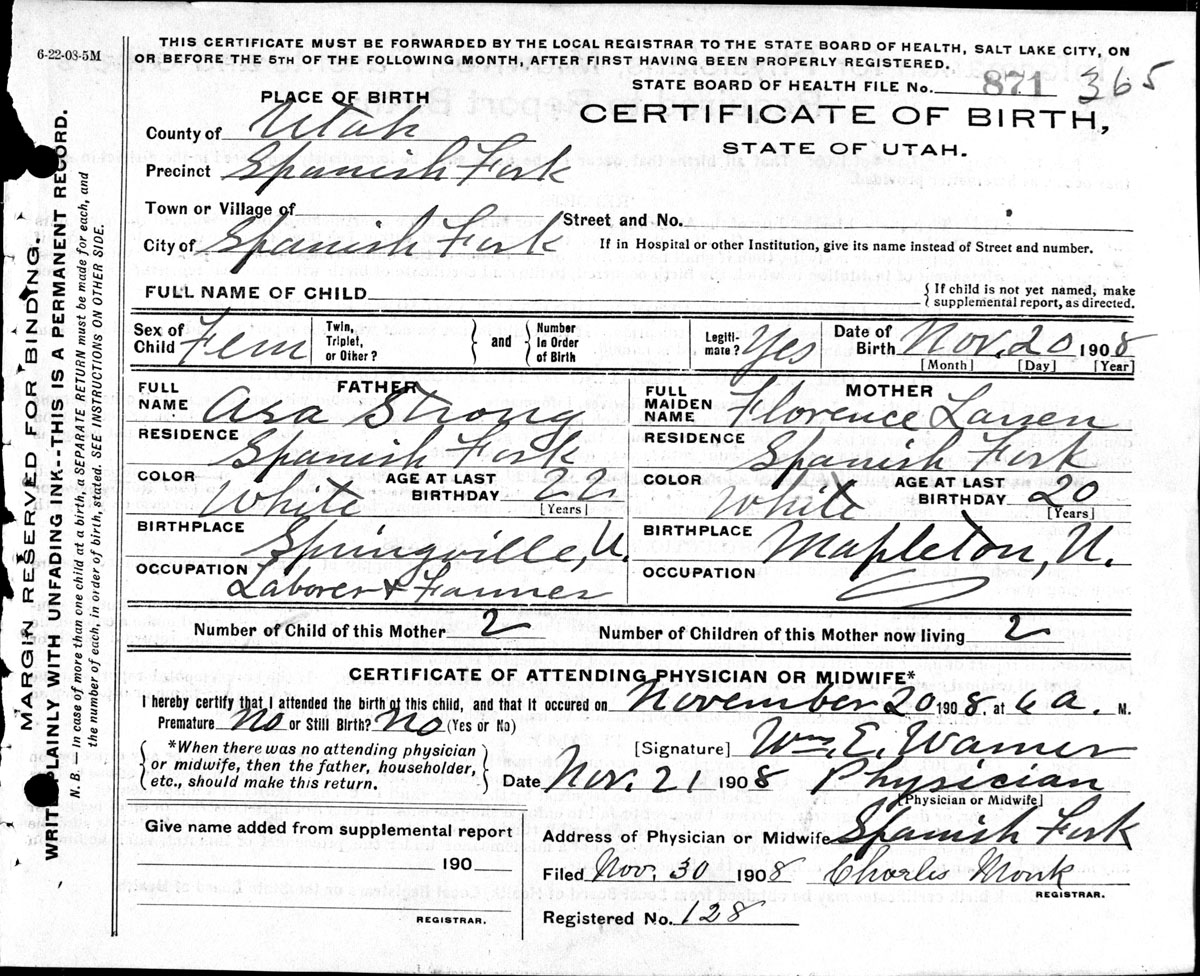 6-22-08-5M
THIS CERTIFICATE MUST BE FORWARDED BY THE LOCAL REGISTRAR TO THE STATE BOARD OF HEALTH, SALT LAKE CITY, ON
OR BEFORE THE 5TH OF THE FOLLOWING MONTH, AFTER FIRST HAVING BEEN PROPERLY REGISTERED.
STATE BOARD OF HEALTH FILE No. 871 365
PLACE OF BIRTH
CERTIFICATE OF BIRTH,
STATE OF UTAH.
County of Utah
Precinct Spanish Fork
Town or Village of
Street and No.
City of Spanish Fork
If in Hospital or other Institution, give its name instead of Street and number.
FULL NAME OF CHILD
{ If child is not yet named, make
supplemental report, as directed.
Sex of Child Fem
Twin, Triplet, or Other?
and
Number In Order of Birth
Legitimate? Yes
Date of Birth Nov. 20 1908
[Month] [Day] [Year]
FATHER
FULL NAME Asa Strong
RESIDENCE Spanish Fork
COLOR White
AGE AT LAST BIRTHDAY 22
[Years]
BIRTHPLACE Springville, U.
OCCUPATION Laborer & Farmer
MOTHER
FULL MAIDEN NAME Florence Larsen
RESIDENCE Spanish Fork
COLOR White
AGE AT LAST BIRTHDAY 20
[Years]
BIRTHPLACE Mapleton, U.
OCCUPATION
Number of Child of this Mother 2
Number of Children of this Mother now living 2
CERTIFICATE OF ATTENDING PHYSICIAN OR MIDWIFE*
I hereby certify that I attended the birth of this child, and that it occured on November 20 1908 at 6 a. M.
Premature No or Still Birth? No (Yes or No)
*When there was no attending physician
or midwife, then the father, householder,
etc., should make this return.
[Signature] Wm. E. Warner
Date Nov. 21 1908 Physician
[Physician or Midwife]
Give name added from supplemental report
190
REGISTRAR.
Address of Physician or Midwife Spanish Fork
Filed Nov. 30 1908 Charles Monk
REGISTRAR.
Registered No. 128
MARGIN RESERVED FOR BINDING.
WRITE PLAINLY WITH UNFADING INK--THIS IS A PERMANENT RECORD.
N. B. — In case of more than one child at a birth, a SEPARATE RETURN must be made for each, and
the number of each, in order of birth, stated. SEE INSTRUCTIONS ON OTHER SIDE.